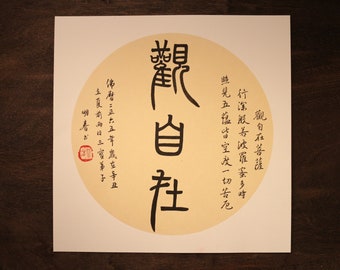 觀自在菩薩
行深般若波羅蜜多時
照見五蘊皆空度一切苦厄
觀自在
佛曆二五六五年歲在辛丑
立夏前两日三寶弟子